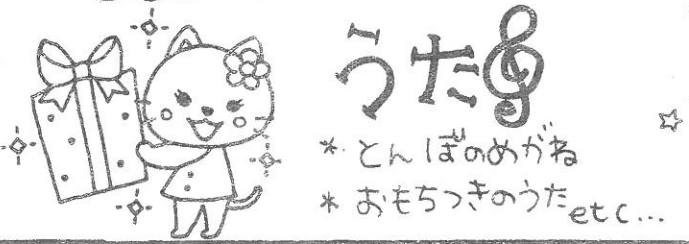 うた
* とんぼのめがね
* おもちつきのうた etc...